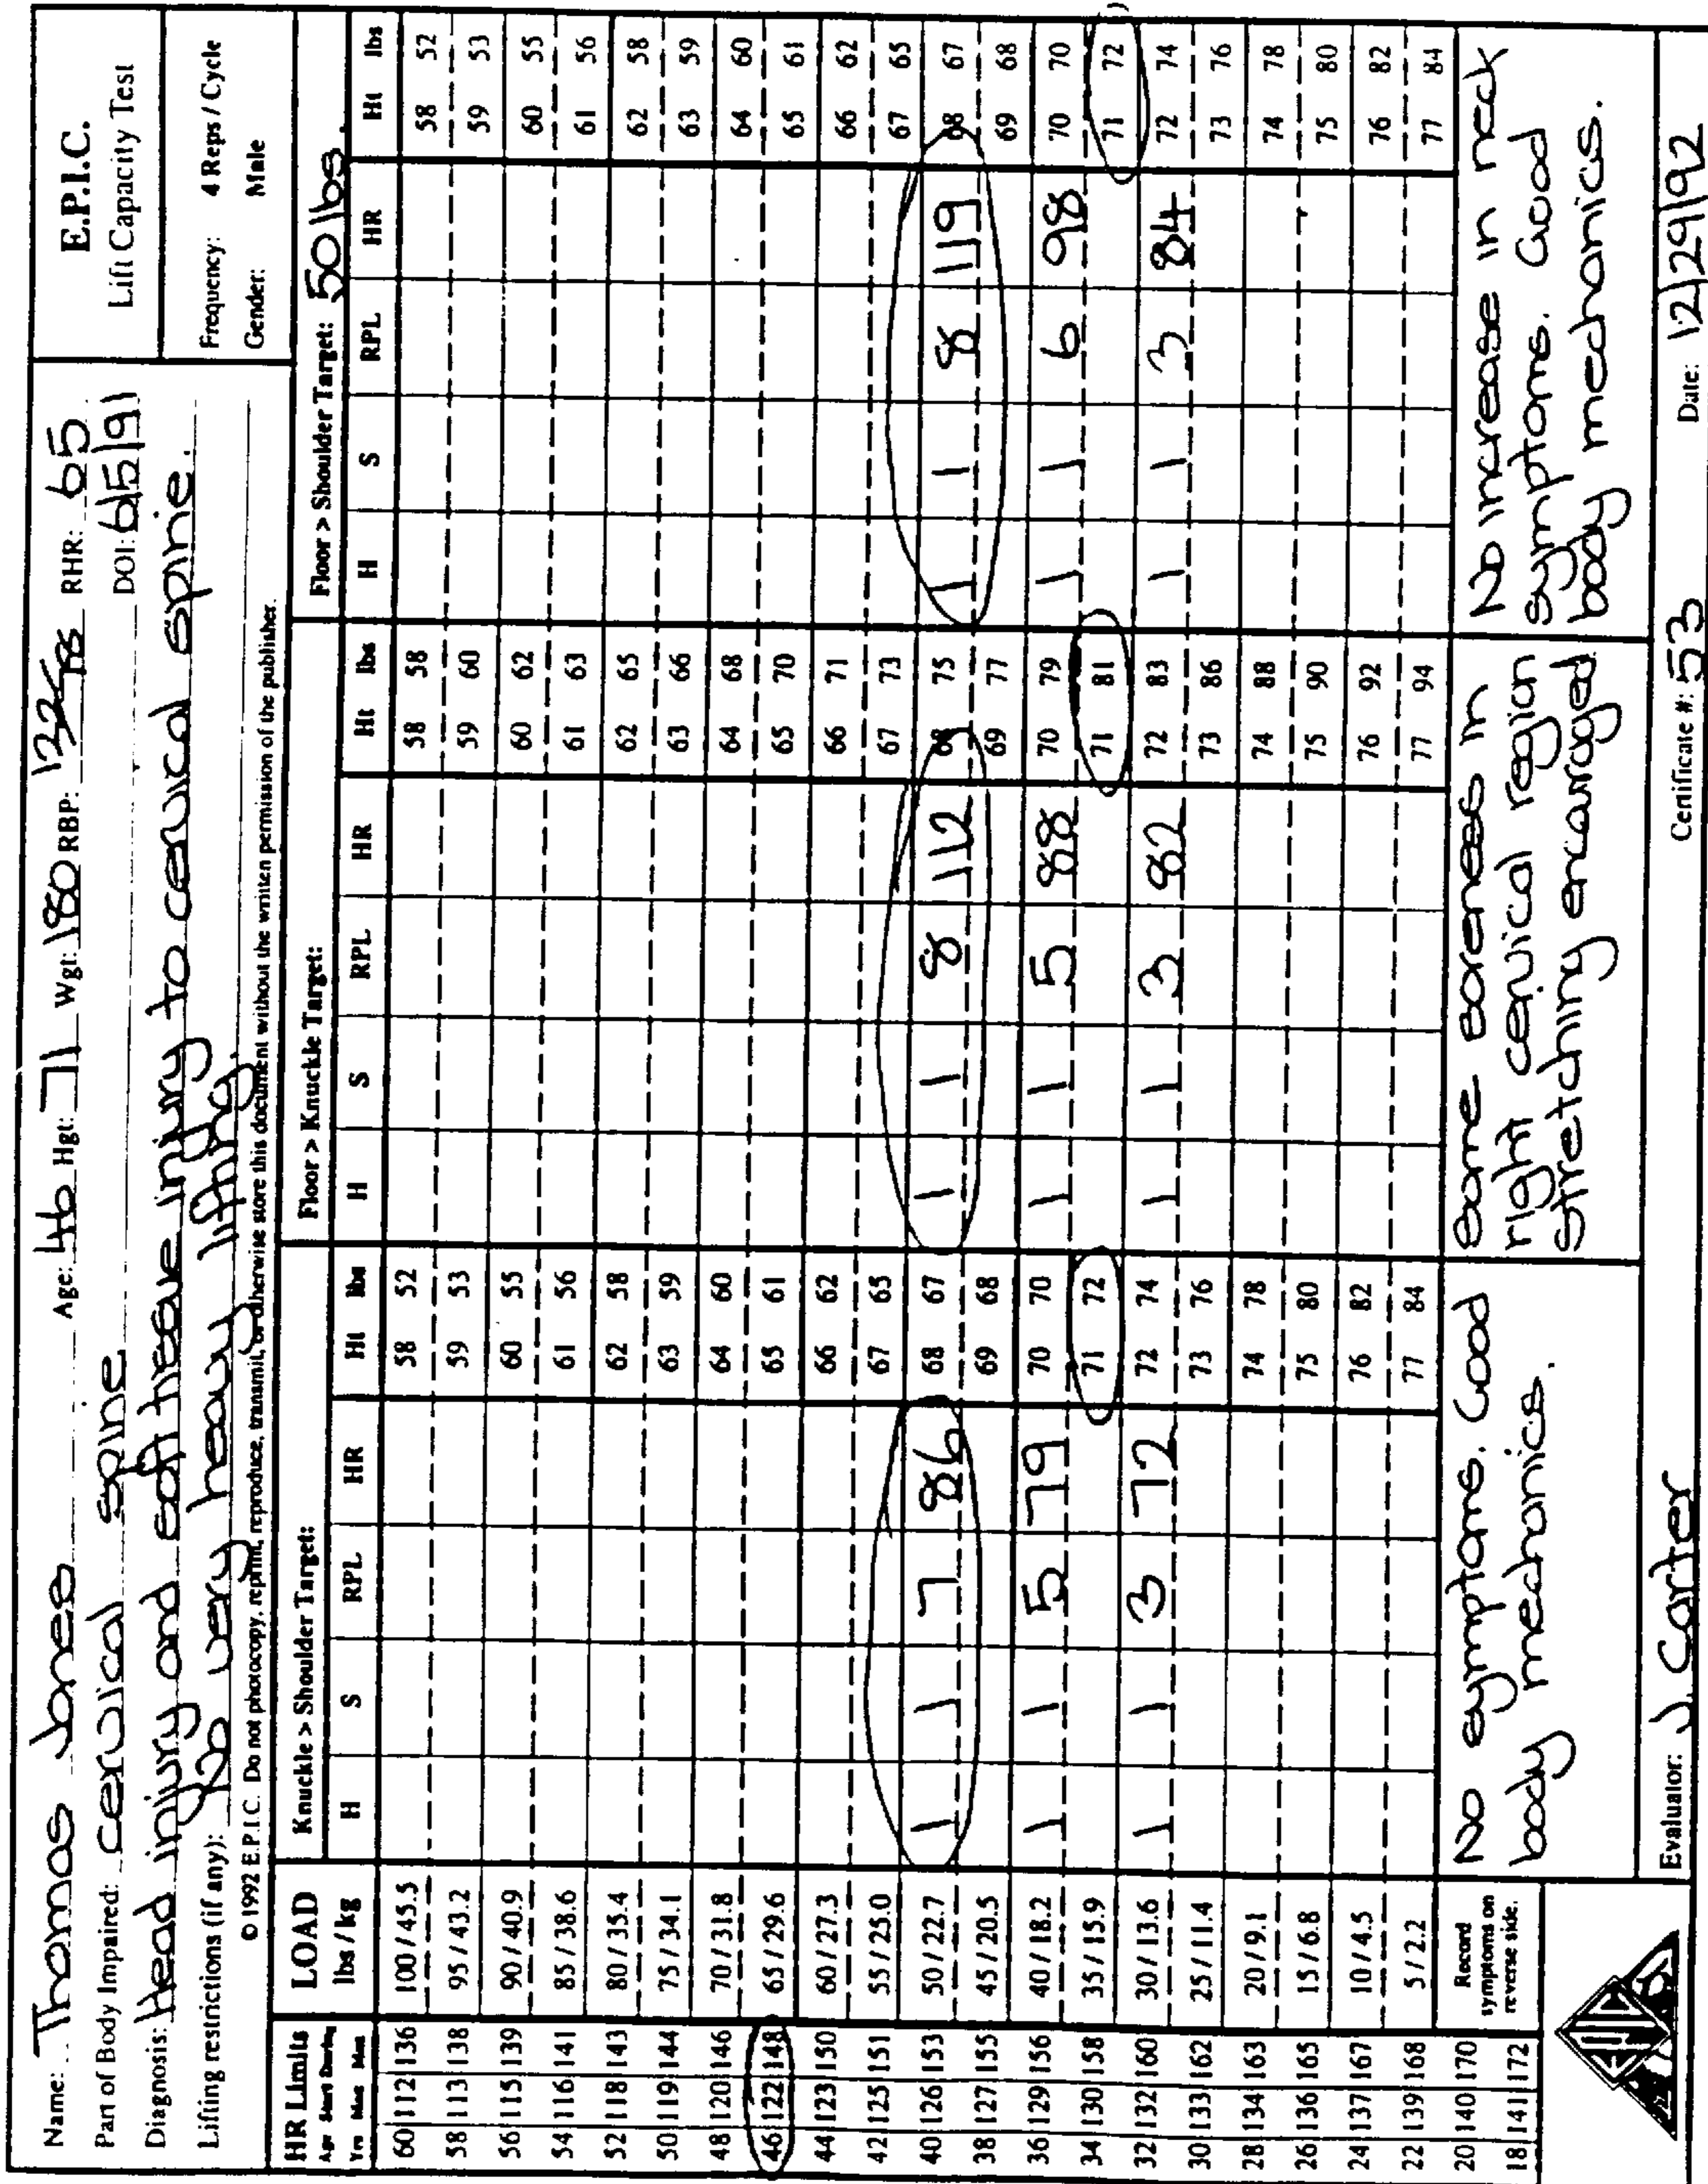 Name: Thomas Jones Age: 46 Hgt: 71 Wgt: 180 RBP: 132/78 RHR: 65
Part of Body Impaired: cervical spine DOI: 6/5/91
Diagnosis: Head injury and soft tissue injury to cervical spine.
Lifting restrictions (if any): No very heavy lifting.
© 1992 E.P.I.C. Do not photocopy, reprint, reproduce, transmit, or otherwise store this document without the writen permission of the publisher.
E.P.I.C.
Lift Capacity Test
Frequency: 4 Reps / Cycle
Gender: Male
HR Limits LOAD Knuckle > Shoulder Target: Floor > Knuckle Target: Floor > Shoulder Target: 50 lbs.
Age Yrs Start Max During Max lbs / kg H S RPL HR Ht lbs H S RPL HR Ht lbs H S RPL HR Ht lbs
60 112 136 100 / 45.5 58 52 58 58 58 52
58 113 138 95 / 43.2 59 53 59 60 59 53
56 115 139 90 / 40.9 60 55 60 62 60 55
54 116 141 85 / 38.6 61 56 61 63 61 56
52 118 143 80 / 35.4 62 58 62 65 62 58
50 119 144 75 / 34.1 63 59 63 66 63 59
48 120 146 70 / 31.8 64 60 64 68 64 60
46 122 148 65 / 29.6 65 61 65 70 65 61
44 123 150 60 / 27.3 66 62 66 71 66 62
42 125 151 55 / 25.0 67 65 67 73 67 65
40 126 153 50 / 22.7 1 1 7 86 68 67 1 1 8 112 68 75 1 1 8 119 68 67
38 127 155 45 / 20.5 69 68 69 77 69 68
36 129 156 40 / 18.2 1 1 5 79 70 70 1 1 5 88 70 79 1 1 6 98 70 70
34 130 158 35 / 15.9 71 72 71 81 71 72
32 132 160 30 / 13.6 1 1 3 72 72 74 1 1 3 82 72 83 1 1 3 84 72 74
30 133 162 25 / 11.4 73 76 73 86 73 76
28 134 163 20 / 9.1 74 78 74 88 74 78
26 136 165 15 / 6.8 75 80 75 90 75 80
24 137 167 10 / 4.5 76 82 76 92 76 82
22 139 168 5 / 2.2 77 84 77 94 77 84
20 140 170
18 141 172
Record
symptoms on
reverse side.
No symptoms. Good
body mechanics.
Some soreness in
right cervical region
stretching encouraged
No increase in neck
symptoms. Good
body mechanics.
Evaluator: J. Carter Certificate #: 53 Date: 12/29/92